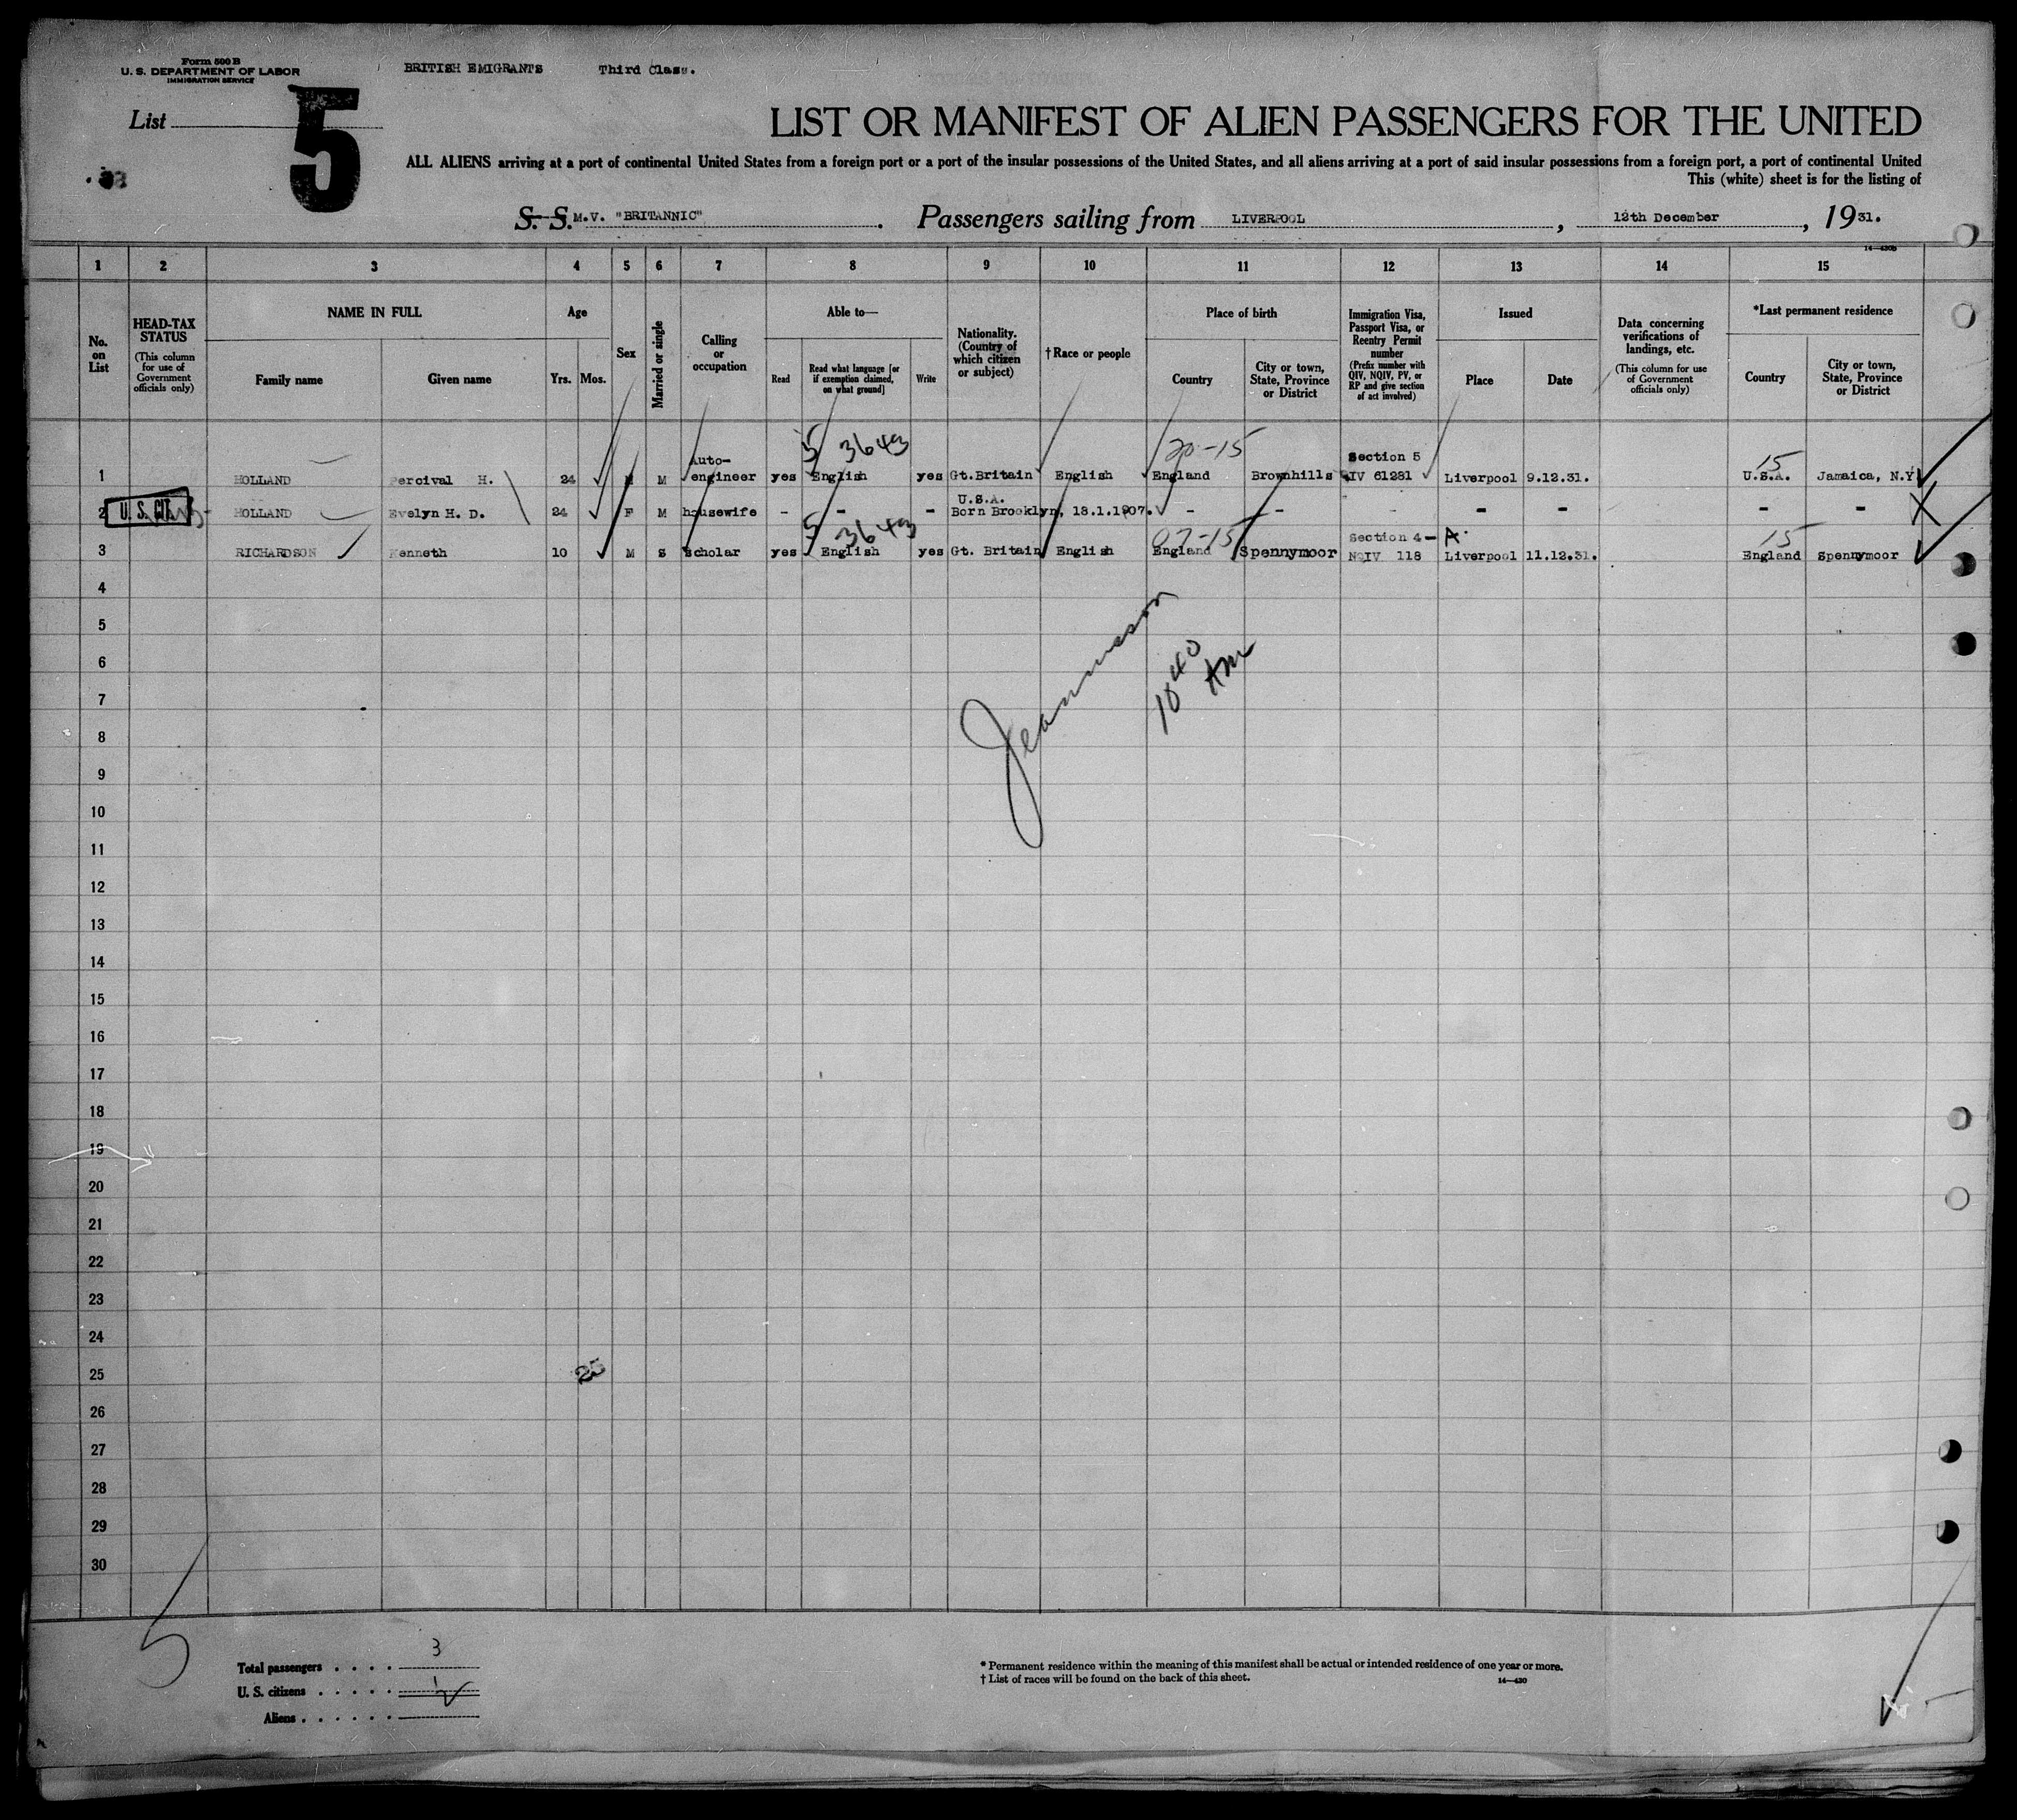 Form 500 B
U. S. DEPARTMENT OF LABOR
IMMIGRATION SERVICE
BRITISH EMIGRANTS Third Class.
List 5
LIST OR MANIFEST OF ALIEN PASSENGERS FOR THE UNITED
ALL ALIENS arriving at a port of continental United States from a foreign port or a port of the insular possessions of the United States, and all aliens arriving at a port of said insular possessions from a foreign port, a port of continental United
This (white) sheet is for the listing of
S. S. M.V. "BRITANNIC". Passengers sailing from LIVERPOOL, 12th December, 1931.
14—430B
1 2 3 4 5 6 7 8 9 10 11 12 13 14 15
No. on List
HEAD-TAX STATUS (This column for use of Government officials only)
NAME IN FULL
Family name
Given name
Age
Yrs. Mos.
Sex
Married or single
Calling or occupation
Able to—
Read
Read what language [or if exemption claimed, on what ground]
Write
Nationality. (Country of which citizen or subject)
†Race or people
Place of birth
Country
City or town, State, Province or District
Immigration Visa, Passport Visa, or Reentry Permit number (Prefix number with QIV, NQIV, PV, or RP and give section of act involved)
Issued
Place
Date
Data concerning verifications of landings, etc. (This column for use of Government officials only)
*Last permanent residence
Country
City or town, State, Province or District
5 3643 20-15 15
Auto- Section 5
1 HOLLAND Percival H. 24 M M engineer yes English yes Gt.Britain English England Brownhills QIV 61281 Liverpool 9.12.31. U.S.A. Jamaica, N.Y
U.S.A.
2 U. S. CIT. HOLLAND Evelyn H. D. 24 F M housewife - - - Born Brooklyn, 18.1.1907. - - - - - - -
5 3643 07-15 Section 4- A. 15
3 RICHARDSON Kenneth 10 M S scholar yes English yes Gt. Britain English England Spennymoor NQIV 118 Liverpool 11.12.31. England Spennymoor
4
5
6
10 40 AM
7
8
9
10
11
12
13
14
15
16
17
18
19
20
21
22
23
24
25 25
26
27
28
29
30
5
Total passengers . . . . 3
U. S. citizens . . . . . 1
Aliens . . . . . .
* Permanent residence within the meaning of this manifest shall be actual or intended residence of one year or more.
† List of races will be found on the back of this sheet. 14—430